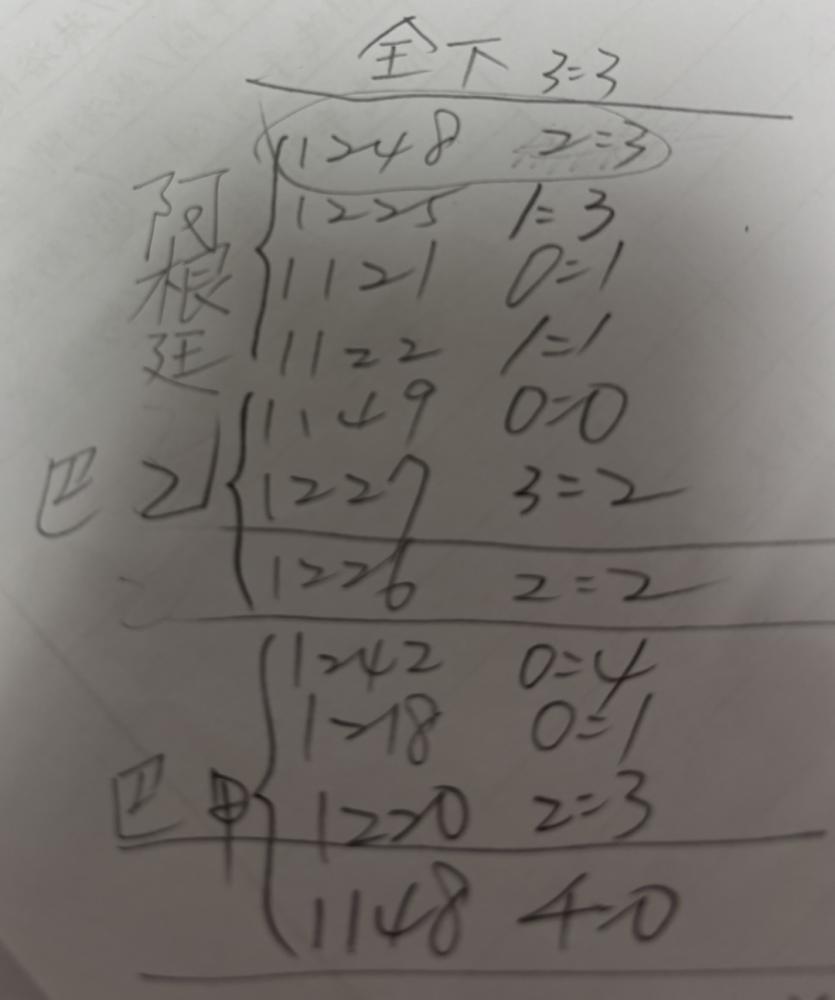 全下 3=3
1248 2=3
阿根廷
1225 1=3
1121 0=1
1122 1=1
1149 0=0
巴乙
1227 3=2
1226 2=2
1242 0=4
1218 0=1
巴甲
1220 2=3
1148 4=0